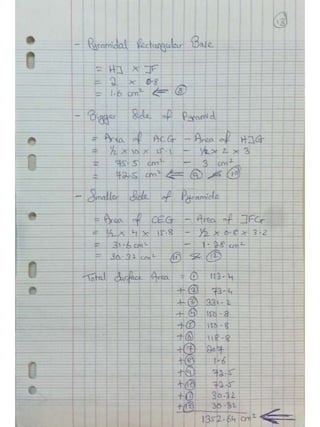 13
- Pyramidal Rectangular Base
= HI × IF
= 2 × 0.8
= 1.6 cm² ⇐ ⑧
- Bigger Side of Pyramid
= Area of ACG - Area of HIG
= ½ × 10 × 15.1 - ½ × 2 × 3
= 75.5 cm² - 3 cm²
= 72.5 cm² ⇐ ⑨ & ⑩
- Smaller Side of Pyramide
= Area of CEG - Area of IFG
= ½ × 4 × 15.8 - ½ × 0.8 × 3.2
= 31.6 cm² - 1.28 cm²
= 30.32 cm² ⑪ & ⑫
Total Surface Area = ① 113.4
+ ② 73.4
+ ③ 331.2
+ ④ 150.8
+ ⑤ 150.8
+ ⑥ 118.8
+ ⑦ 207
+ ⑧ 1.6
+ ⑨ 72.5
+ ⑩ 72.5
+ ⑪ 30.32
+ ⑫ 30.32
1352.64 cm² ⇐